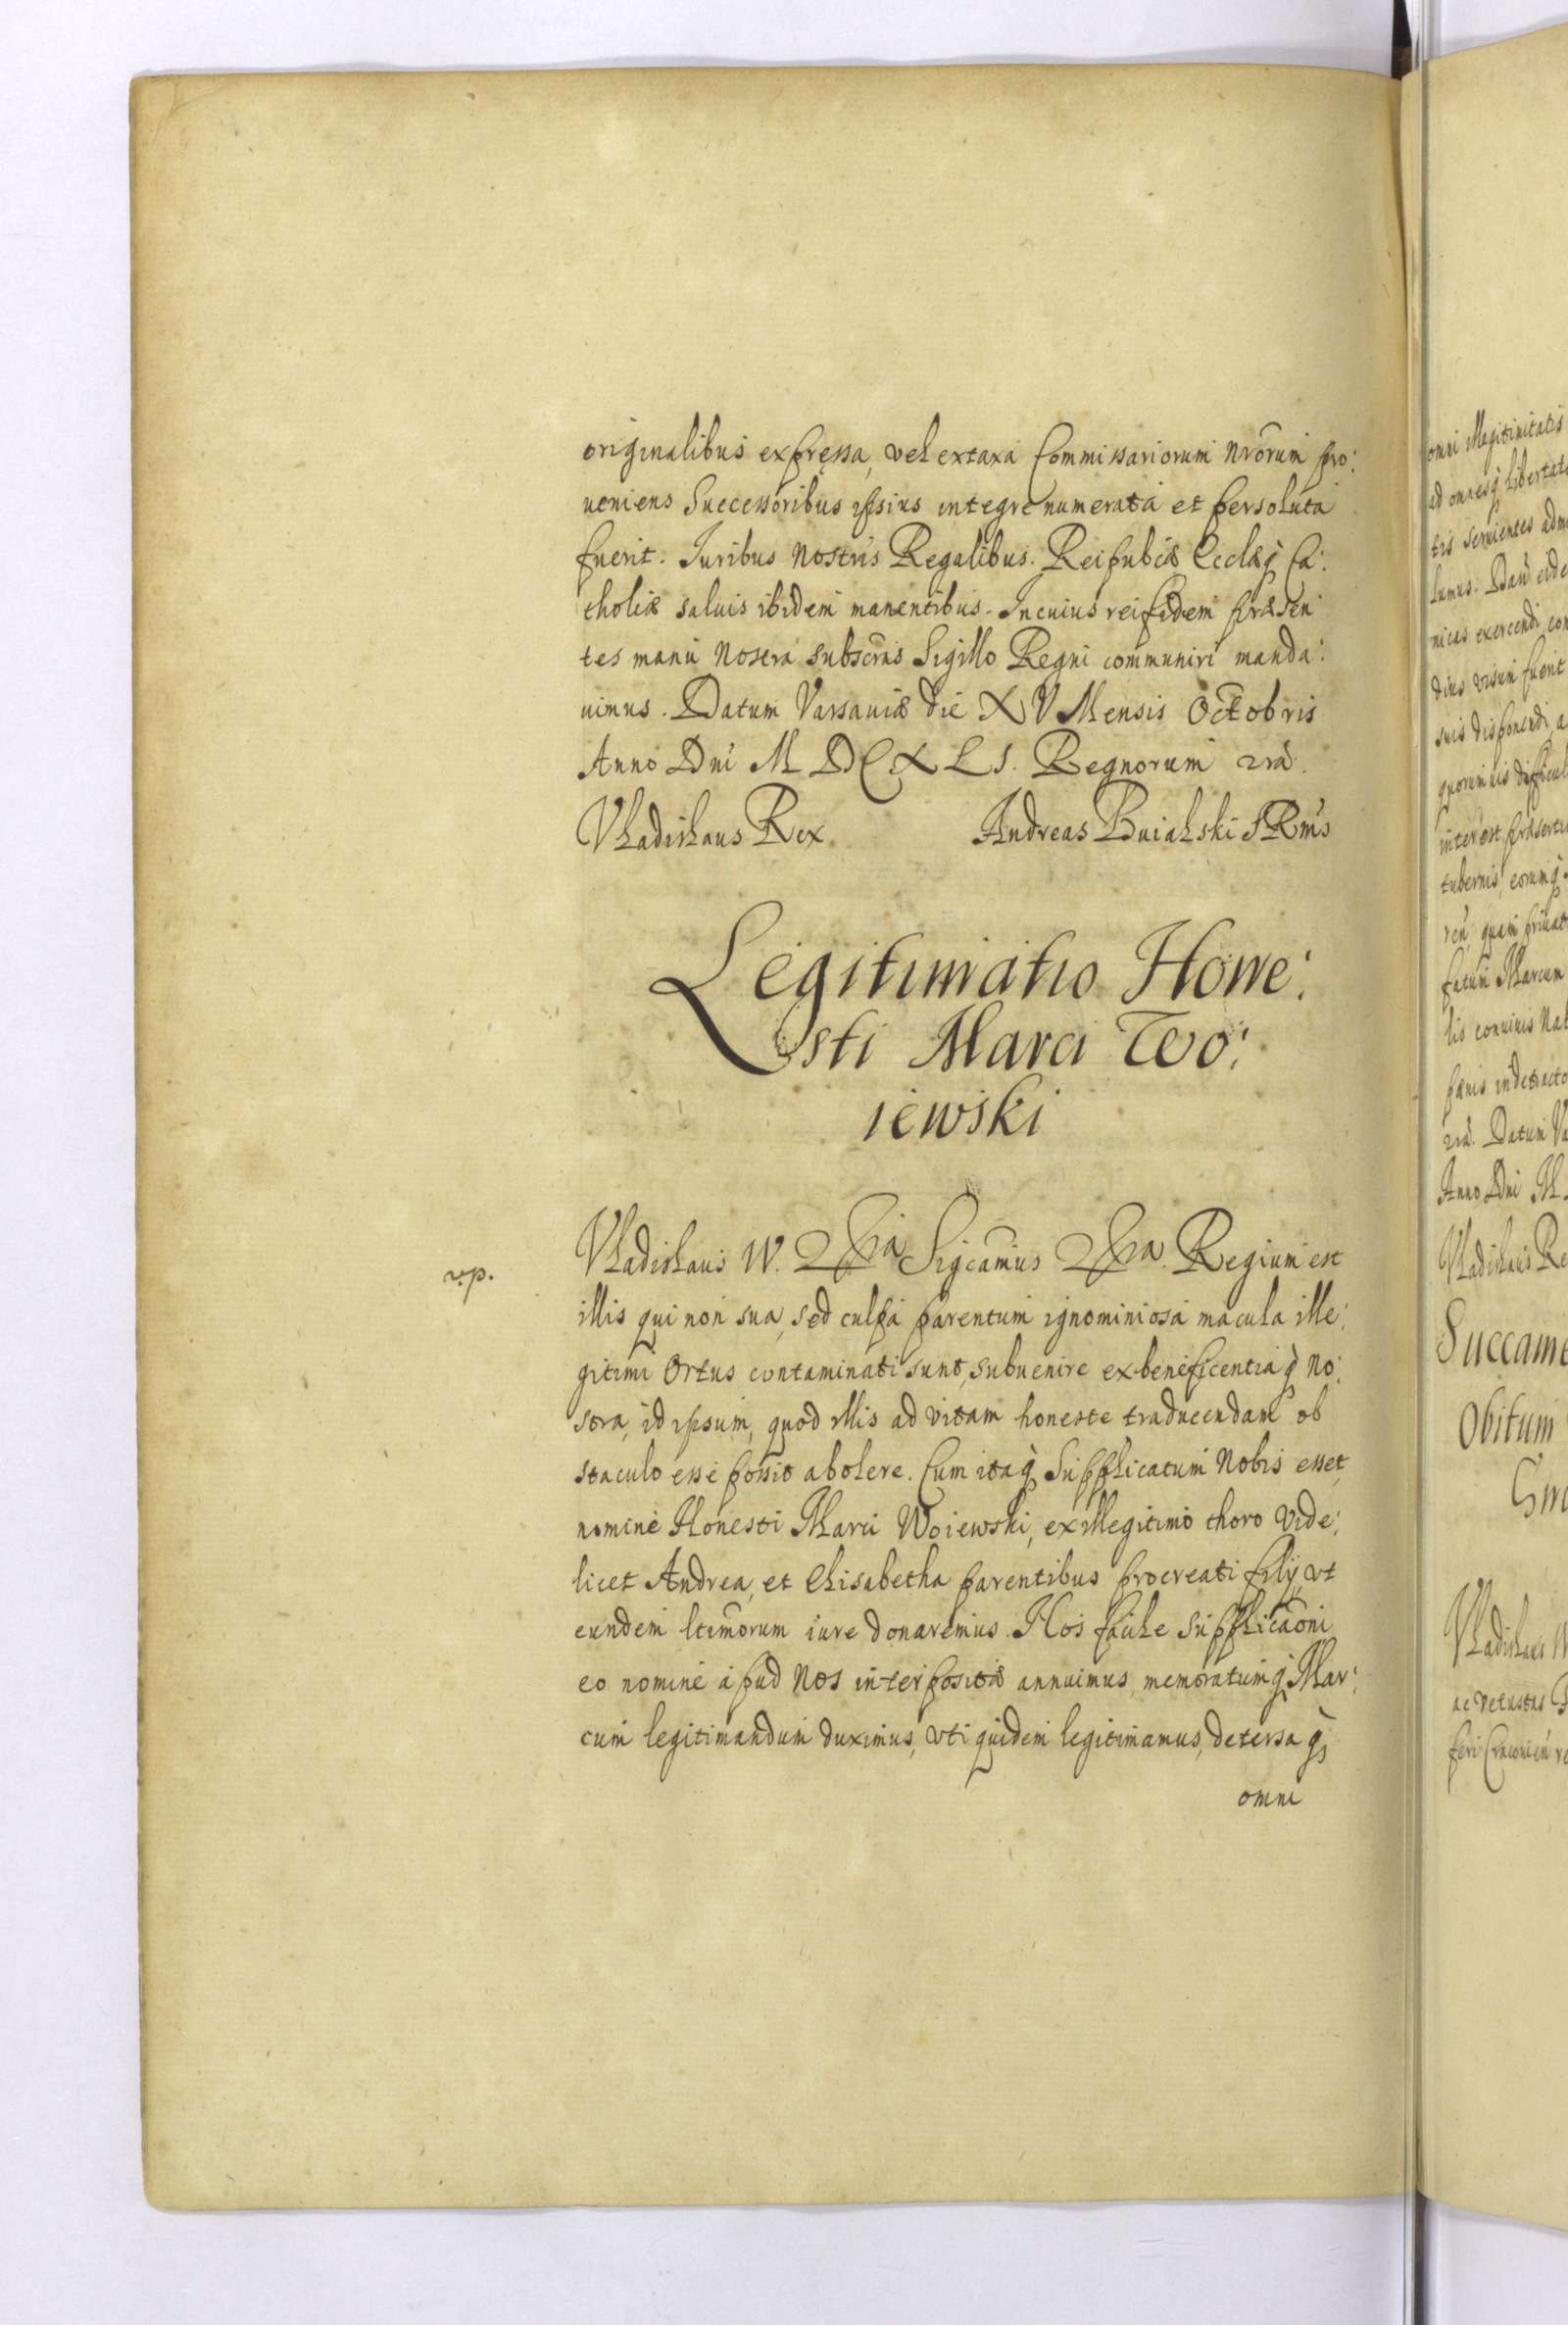 originalibus expressa, vel ex taxa Commissariorum nrorum pro:
ueniens Successoribus ipsius integre numerata et persoluta
fuerit. Iuribus Nostris Regalibus. Reipubcæ Ecclæq Ca:
tholicæ saluis ibidem manentibus. In cuius rei fidem præsen
tes manu Nostra subscras Sigillo Regni communiri manda:
uimus. Datum Varsauiæ die XV Mensis Octobris
Anno Dni MDCXLI. Regnorum
Vladislaus Rex. Andreas Buialski SRMs
Legitimatio Hone:
sti Marci Wo:
iewski
Vladislaus IV. Sigcamus Regium est
v.p.
illis qui non sua, sed culpa parentum ignominiosa macula ille:
gitimi Ortus contaminati sunt, subuenire ex beneficentiaq no:
stra, id ipsum, quod illis ad vitam honeste traducendam ob
staculo esse possit abolere. Cum itaq Supplicatum Nobis esset,
nomine Honesti Marci Woiewski, ex illegitimo thoro vide:
licet Andrea, et Elisabetha parentibus procreati filij, vt
eundem ltimorum iure donaremus. Nos facile supplicaoni
eo nomine apud Nos interpositæ annuimus, memoratumq Mar:
cum legitimandum duximus, vti quidem legitimamus, detersaq
omni
omni illegitimitatis
ad omnesq libertat
tis seruientes adm
lumus.
nicas exercendi
dius visum fuerit
suis disponendi, a
interest
quam priuat
Marcum
lis conuiuis Nat
Datum Va
Anno Dni M
Vladislaus Re
Succame
Obitum
Vladislaus
ac vetustas